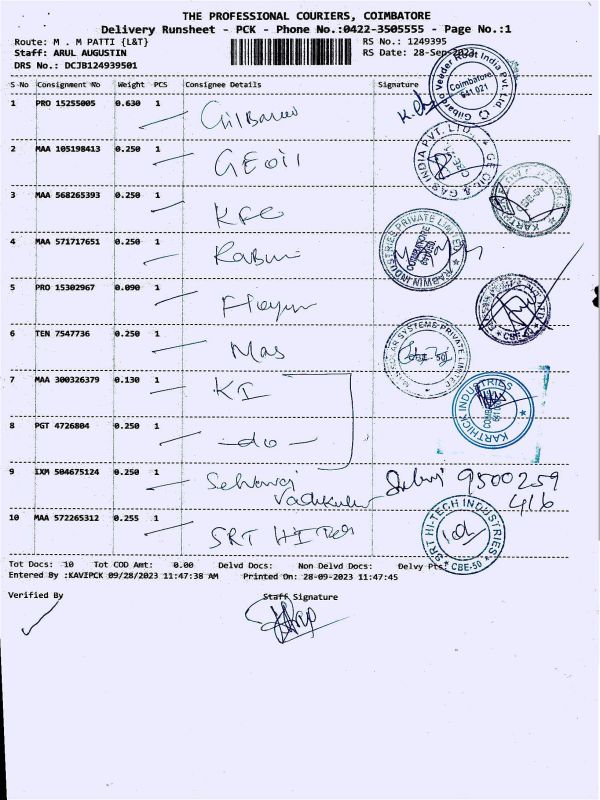 THE PROFESSIONAL COURIERS, COIMBATORE
Delivery Runsheet - PCK - Phone No.:0422-3505555 - Page No.:1
Route: M . M PATTI {L&T} RS No.: 1249395
Staff: ARUL AUGUSTIN RS Date: 28-Sep-2023
DRS No.: DCJB124939501
S No Consignment No Weight PCS Consignee Details Signature
1 PRO 15255005 0.630 1
Gilbarco Veeder Root India Pvt. Ltd. Coimbatore 641 021
2 MAA 105198413 0.250 1 GEOil
GEOIL & GAS INDIA PVT. LTD. CBE-50
3 MAA 568265393 0.250 1
CBE-50
4 MAA 571717651 0.250 1
RABWIN INDUSTRIES PRIVATE LIMITED COIMBATORE
5 PRO 15302967 0.090 1
CBE-50
6 TEN 7547736 0.250 1 Mas
SYSTEMS PRIVATE LIMITED
7 MAA 300326379 0.130 1 KI
KARTHICK INDUSTRIES
8 PGT 4726804 0.250 1 -do-
9 IXM 504675124 0.250 1 Selvaraj 9500259
416
10 MAA 572265312 0.255 1 SRT HI
SRT HI-TECH INDUSTRIES CBE-50
Tot Docs: 10 Tot COD Amt: 0.00 Delvd Docs: Non Delvd Docs: Delvy Pts:
Entered By :KAVIPCK 09/28/2023 11:47:38 AM Printed On: 28-09-2023 11:47:45
Verified By Staff Signature